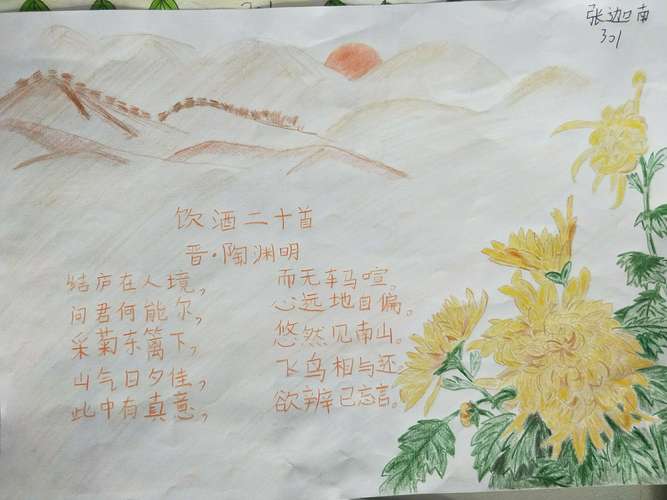 张迦南
301
饮酒二十首
晋·陶渊明
结庐在人境，而无车马喧。
问君何能尔，心远地自偏。
采菊东篱下，悠然见南山。
山气日夕佳，飞鸟相与还。
此中有真意，欲辨已忘言。